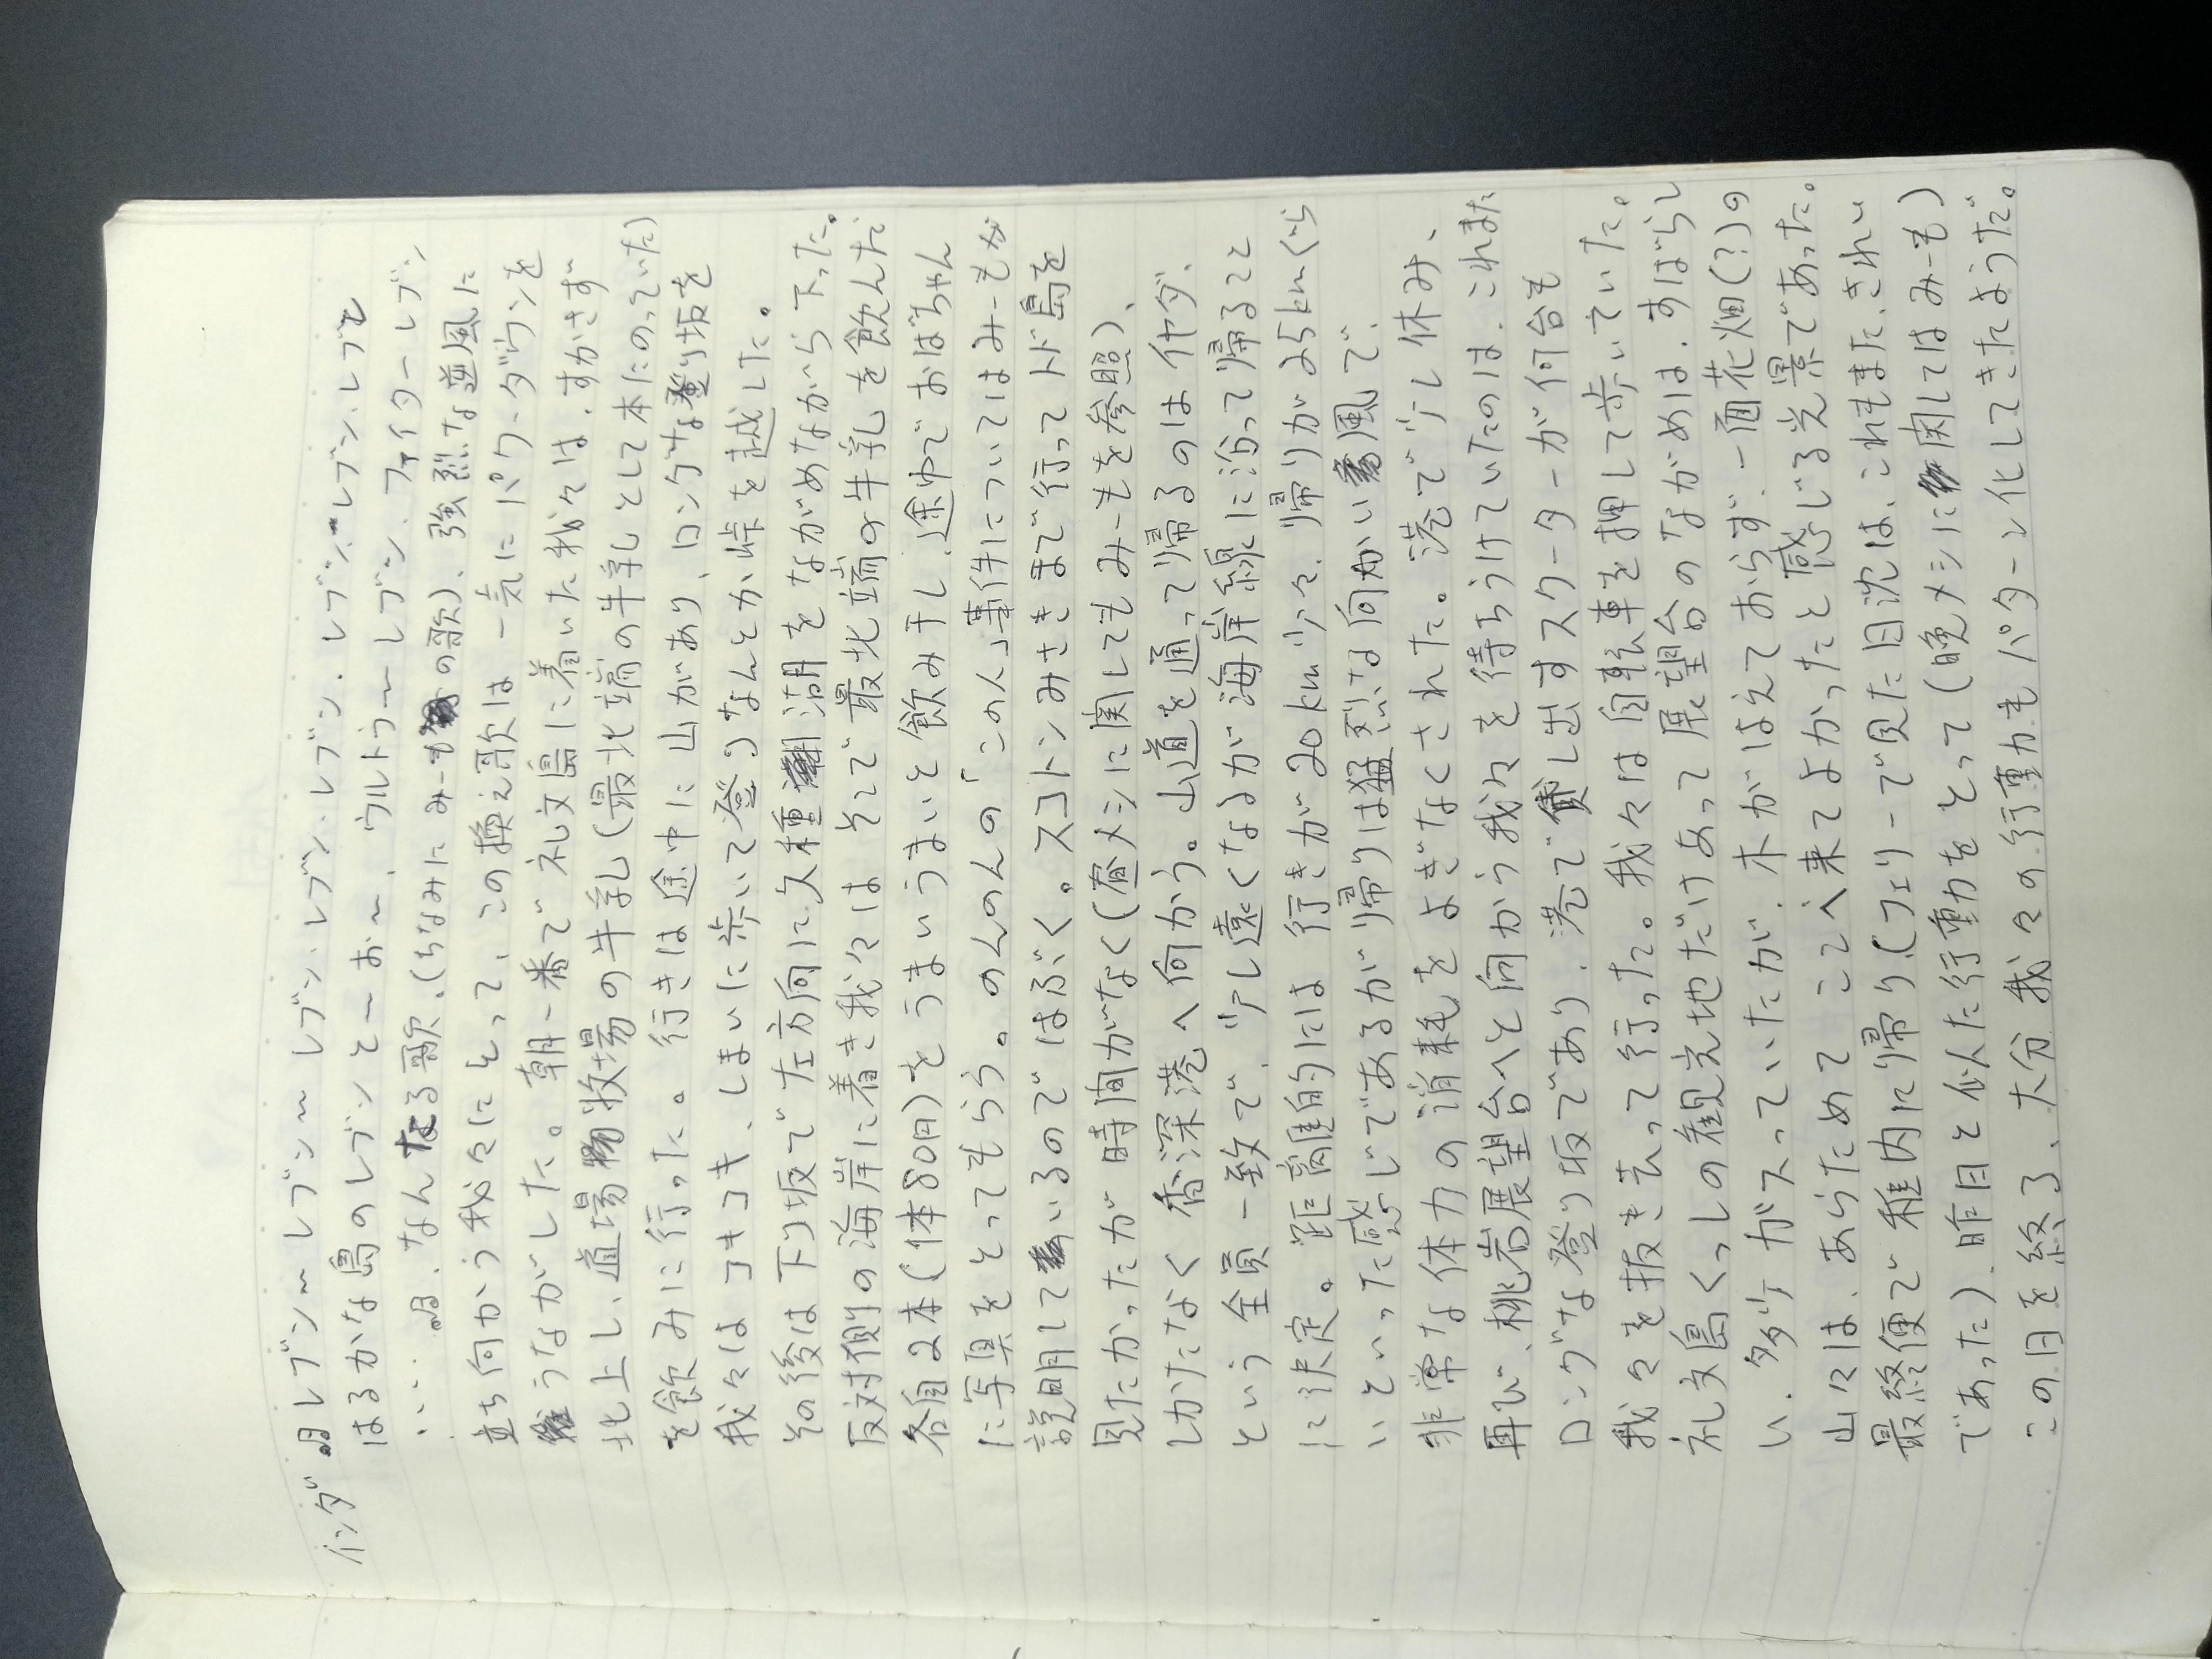 インダ ♫レブン〜レブン〜レブン、レブン、レブン、レブン、レブン、レブン、レブと
はるかな島のレブンと〜お〜、ウルトラ〜レブン、ファイターレブン
‥‥♫、なんたる歌、(ちなみにみーもの歌)、強烈な逆風に
立ち向かう我々にとって、この換え歌は一気にパワーダウンを
うながした。朝一番で礼文島に着いた我々は、すかさず
北上し、道場牧場の牛乳(最北端の牛乳として本にのっていた)
を飲みに行った。行きは途中に山があり、ロングな登り坂を
我々はコキコキ、しまいに歩いて登りなんとか峠を越した。
その後は下り坂で左方向に久種湖をながめながら下った。
反対側の海岸に着き我々はそこで最北端の牛乳を飲んだ
各自2本(1本80円)をうまいうまいと飲み干し、途中でおばちゃん
に写真をとってもらう。のんのんの「この人」事件についてはみーもが
説明しているのではぶく。スコトンみさきまで行ってトド島を
見たかったが時間がなく(昼メシに関してもみーもを参照)、
しかたなく香深港へ向かう。山道を通って帰るのはイヤダ、
という全員一致で、少し遠くなるが海岸線に沿って帰ること
に決定。距離的には行きが20km少々、帰りが25kmくら
いといった感じであるが帰りは猛烈な向かい風で、
非常な体力の消耗をよぎなくされた。港で少し休み、
再び、桃岩展望台へと向かう我々を待ちうけていたのは、これまた
ロングな登り坂であり、港で貸し出すスクーターが何台も
我々を抜き去って行った。我々は自転車を押して歩いていた。
礼文島くっしの観光地だけあって展望台のながめは、すばらし
い、多少ガスっていたが、木がはえておらず、一面花畑(?)の
山々は、あらためてここへ来てよかったと感じる光景であった。
最終便で稚内に帰り、(フェリーで見た日沈は、これもまた、きれい
であった)、昨日と似た行動をとって(晩メシに関してはみーも)
この日を終る、大分我々の行動もパターン化してきたようだ。